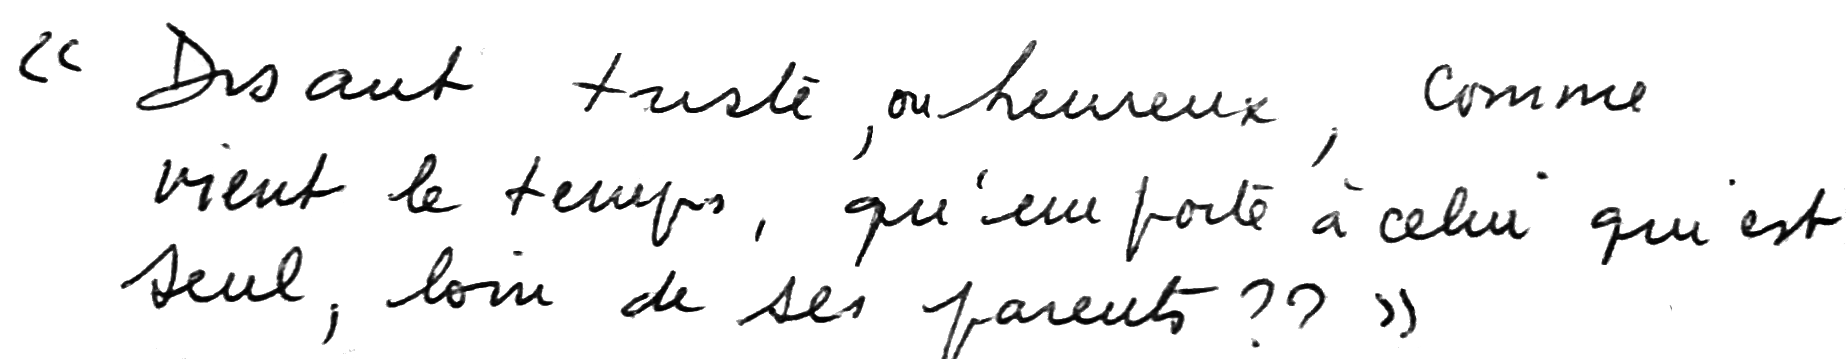 « Disant triste, ou heureux, comme
vient le temps, qu'emporte à celui qui est
seul, loin de ses parents ?? »